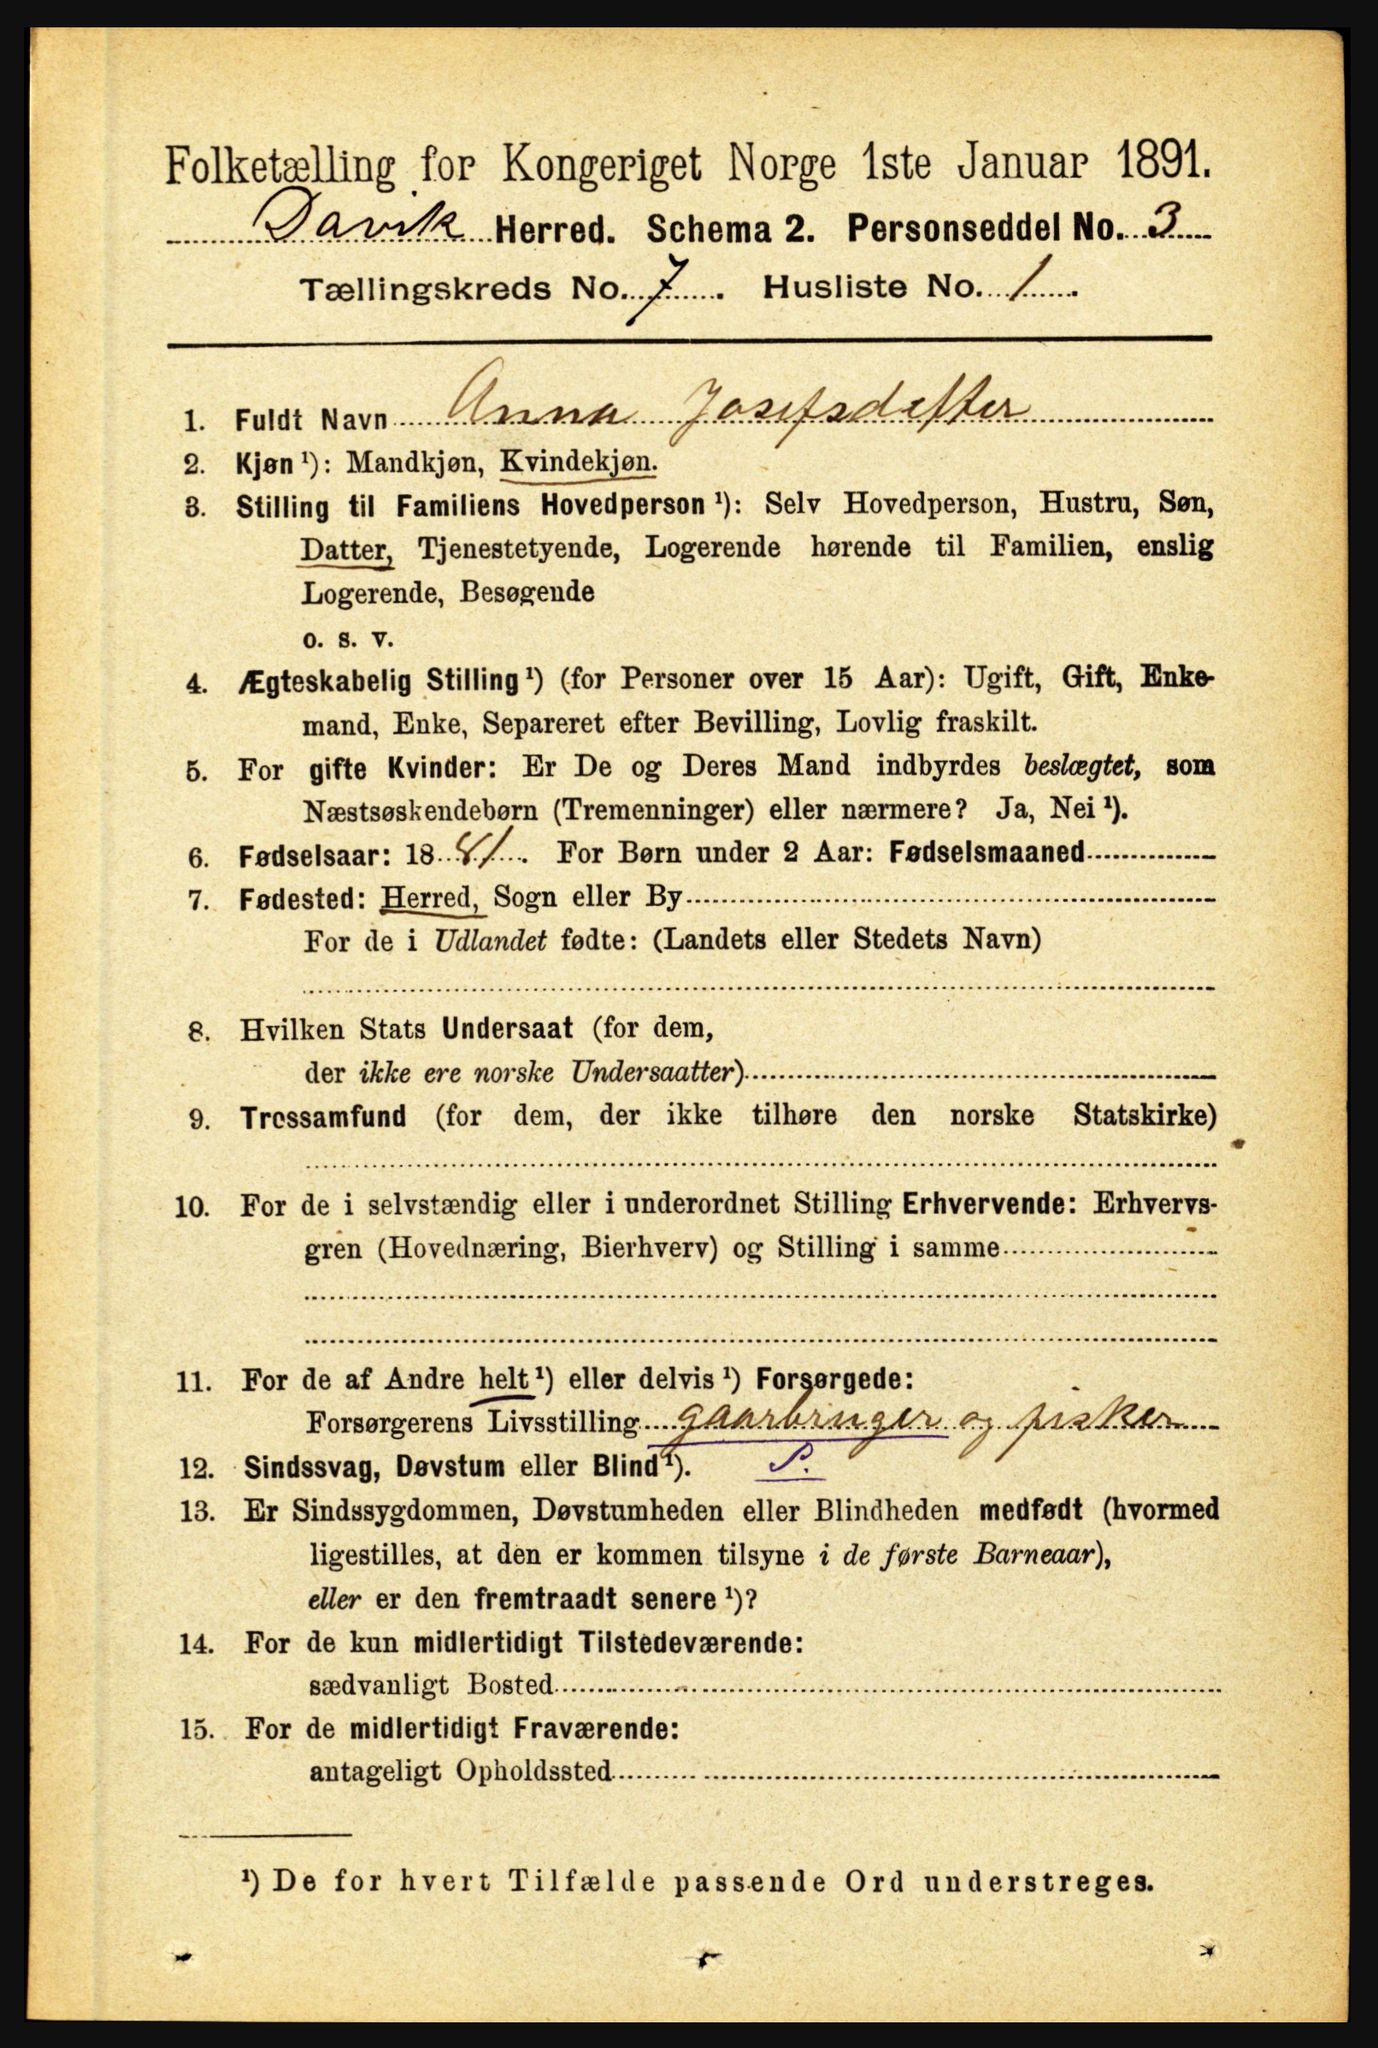 Folketælling for Kongeriget Norge 1ste Januar 1891.
Davik Herred. Schema 2. Personseddel No. 3
Tællingskreds No. 7. Husliste No. 1.
1. Fuldt Navn Anna Josefsdatter
2. Kjøn ¹): Mandkjøn, Kvindekjøn.
3. Stilling til Familiens Hovedperson ¹): Selv Hovedperson, Hustru, Søn,
Datter, Tjenestetyende, Logerende hørende til Familien, enslig
Logerende, Besøgende
o. s. v.
4. Ægteskabelig Stilling ¹) (for Personer over 15 Aar): Ugift, Gift, Enke-
mand, Enke, Separeret efter Bevilling, Lovlig fraskilt.
5. For gifte Kvinder: Er De og Deres Mand indbyrdes beslægtet, som
Næstsøskendebørn (Tremenninger) eller nærmere? Ja, Nei ¹).
6. Fødselsaar: 1881. For Børn under 2 Aar: Fødselsmaaned
7. Fødested: Herred, Sogn eller By
For de i Udlandet fødte: (Landets eller Stedets Navn)
8. Hvilken Stats Undersaat (for dem,
der ikke ere norske Undersaatter)
9. Trossamfund (for dem, der ikke tilhøre den norske Statskirke)
10. For de i selvstændig eller i underordnet Stilling Erhvervende: Erhvervs-
gren (Hovednæring, Bierhverv) og Stilling i samme
11. For de af Andre helt ¹) eller delvis ¹) Forsørgede:
Forsørgerens Livsstilling gaarbruger og fisker
12. Sindssvag, Døvstum eller Blind ¹). S.
13. Er Sindssygdommen, Døvstumheden eller Blindheden medfødt (hvormed
ligestilles, at den er kommen tilsyne i de første Barneaar),
eller er den fremtraadt senere ¹)?
14. For de kun midlertidigt Tilstedeværende:
sædvanligt Bosted
15. For de midlertidigt Fraværende:
antageligt Opholdssted
¹) De for hvert Tilfælde passende Ord understreges.